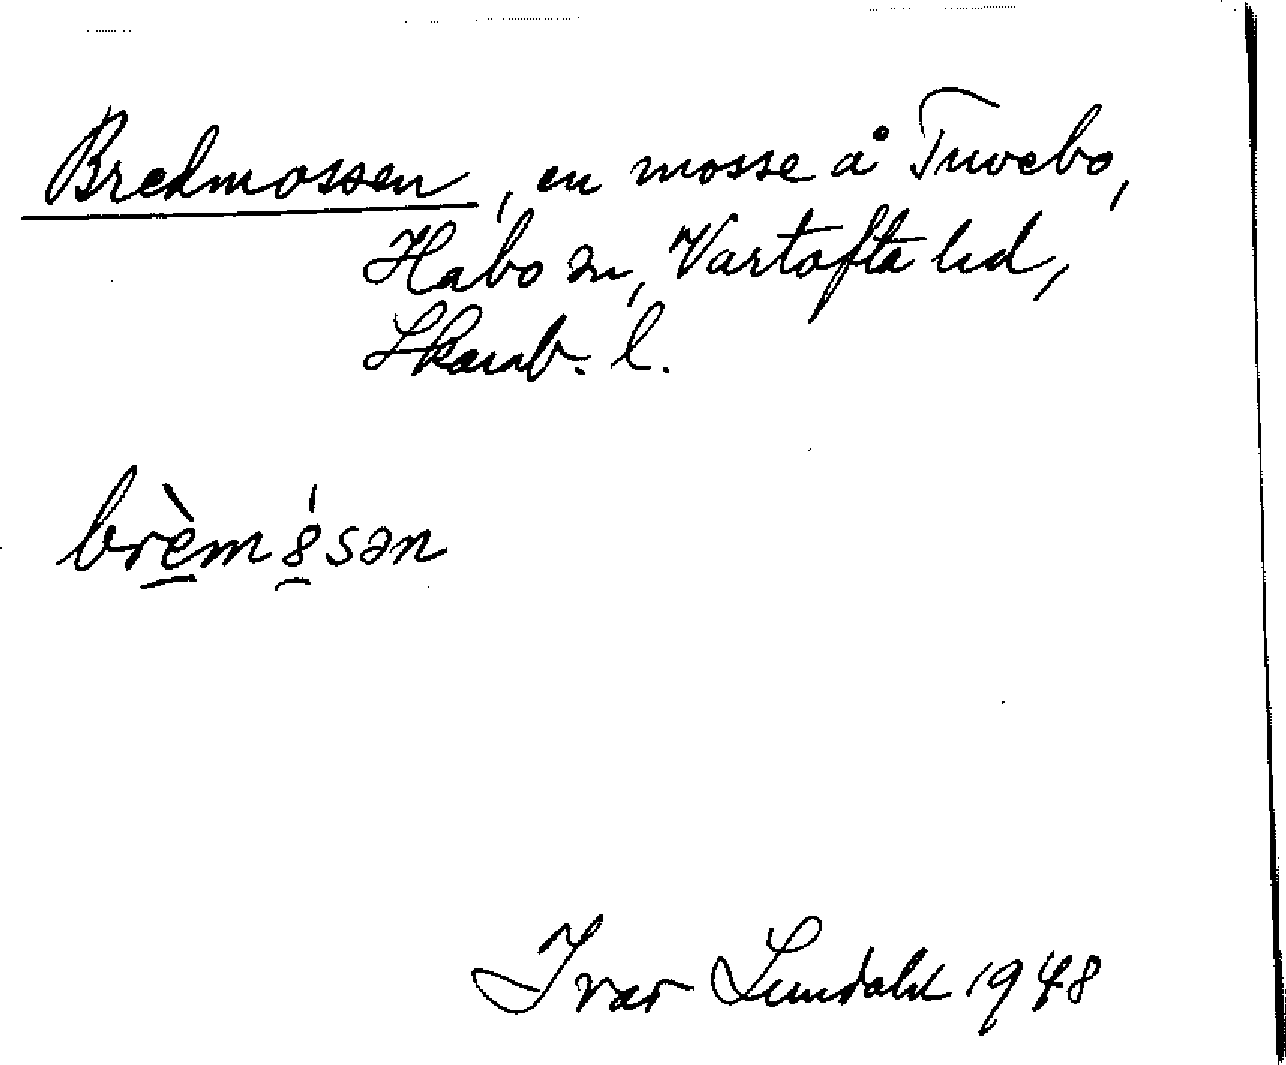 Bredmossen, en mosse å Tuvebo,
Habo sn, Vartofta hd,
Skarab. l.
brèm8́sən
Ivar Lundahl 1948